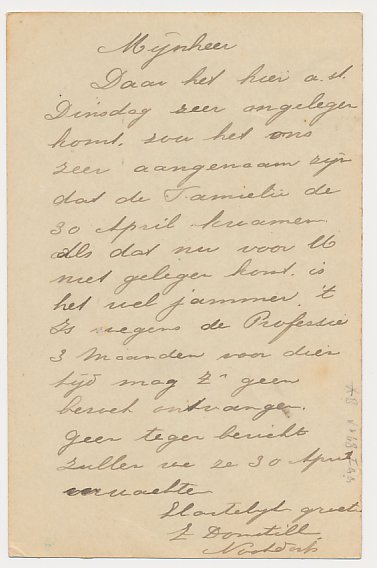 Mijnheer
Daar het hier a.st.
Dinsdag zeer ongelegen
komt, zou het ons
zeer aangenaam zijn
dat de Familie de
30 April kwamen.
Als dat nu voor U
niet gelegen komt. is
het wel jammer. 't
Is wegens de Professie
3 Maanden voor dien
tijd mag Zr geen
bezoek ontvangen.
geen tegen bericht
zullen we ze 30 April
verwachten
Hartelijk groet
Z
Nootdorp